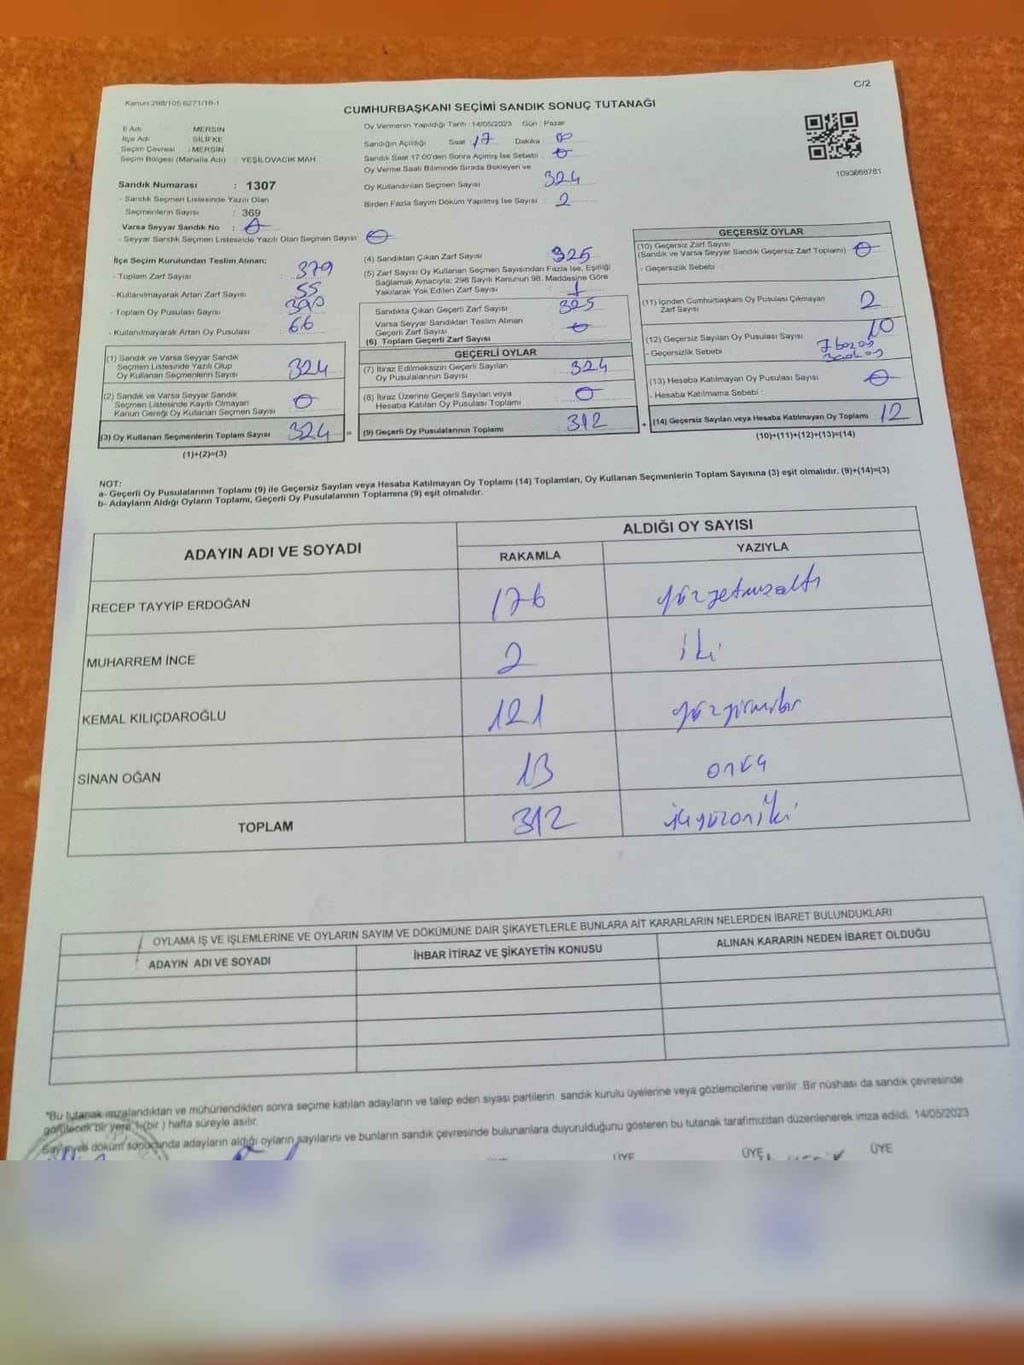 C/2
Kanun:298/105.6271/18-1
CUMHURBAŞKANI SEÇİMİ SANDIK SONUÇ TUTANAĞI
İl Adı MERSİN
İlçe Adı SİLİFKE
Seçim Çevresi : MERSİN
Seçim Bölgesi (Mahalle Adı) YEŞİLOVACIK MAH.
Sandık Numarası : 1307
- Sandık Seçmen Listesinde Yazılı Olan
Seçmenlerin Sayısı : 369
Varsa Seyyar Sandık No : 0
- Seyyar Sandık Seçmen Listesinde Yazılı Olan Seçmen Sayısı 0
Oy Vermenin Yapıldığı Tarih :14/05/2023 Gün : Pazar
Sandığın Açıldığı Saat 17 Dakika 00
Sandık Saat 17.00'den Sonra Açılmış İse Sebebi 0
Oy Verme Saati Bitiminde Sırada Bekleyen ve
Oy Kullandırılan Seçmen Sayısı 324
Birden Fazla Sayım Döküm Yapılmış İse Sayısı 2
1093668781
İlçe Seçim Kurulundan Teslim Alınan;
- Toplam Zarf Sayısı 379
- Kullanılmayarak Artan Zarf Sayısı 55
- Toplam Oy Pusulası Sayısı 390
- Kullanılmayarak Artan Oy Pusulası 66
(1) Sandık ve Varsa Seyyar Sandık
Seçmen Listesinde Yazılı Olup
Oy Kullanan Seçmenlerin Sayısı 324
(2) Sandık ve Varsa Seyyar Sandık
Seçmen Listesinde Kayıtlı Olmayan
Kanun Gereği Oy Kullanan Seçmen Sayısı 0
(3) Oy Kullanan Seçmenlerin Toplam Sayısı 324 =
(1)+(2)=(3)
(4) Sandıktan Çıkan Zarf Sayısı 325
(5) Zarf Sayısı Oy Kullanan Seçmen Sayısından Fazla İse, Eşitliği
Sağlamak Amacıyla; 298 Sayılı Kanunun 98. Maddesine Göre
Yakılarak Yok Edilen Zarf Sayısı 1
Sandıkta Çıkan Geçerli Zarf Sayısı 325
Varsa Seyyar Sandıktan Teslim Alınan
Geçerli Zarf Sayısı 0
(6) Toplam Geçerli Zarf Sayısı
GEÇERLİ OYLAR
(7) İtiraz Edilmeksizin Geçerli Sayılan
Oy Pusulalarının Sayısı 324
(8) İtiraz Üzerine Geçerli Sayılan veya
Hesaba Katılan Oy Pusulası Toplamı 0
(9) Geçerli Oy Pusulalarının Toplamı 312 +
GEÇERSİZ OYLAR
(10) Geçersiz Zarf Sayısı
(Sandık ve Varsa Seyyar Sandık Geçersiz Zarf Toplamı) 0
- Geçersizlik Sebebi
(11) İçinden Cumhurbaşkanı Oy Pusulası Çıkmayan
Zarf Sayısı 2
(12) Geçersiz Sayılan Oy Pusulası Sayısı 10
- Geçersizlik Sebebi
(13) Hesaba Katılmayan Oy Pusulası Sayısı 0
- Hesaba Katılmama Sebebi :
(14) Geçersiz Sayılan veya Hesaba Katılmayan Oy Toplamı 12
(10)+(11)+(12)+(13)=(14)
NOT:
a- Geçerli Oy Pusulalarının Toplamı (9) ile Geçersiz Sayılan veya Hesaba Katılmayan Oy Toplamı (14) Toplamları, Oy Kullanan Seçmenlerin Toplam Sayısına (3) eşit olmalıdır. (9)+(14)=(3)
b- Adayların Aldığı Oyların Toplamı, Geçerli Oy Pusulalarının Toplamına (9) eşit olmalıdır.
ADAYIN ADI VE SOYADI ALDIĞI OY SAYISI
RAKAMLA YAZIYLA
RECEP TAYYİP ERDOĞAN 176 yüzyetmişaltı
MUHARREM İNCE 2 iki
KEMAL KILIÇDAROĞLU 121 yüzyirmibir
SİNAN OĞAN 13 onüç
TOPLAM 312 üçyüzoniki
OYLAMA İŞ VE İŞLEMLERİNE VE OYLARIN SAYIM VE DÖKÜMÜNE DAİR ŞİKAYETLERLE BUNLARA AİT KARARLARIN NELERDEN İBARET BULUNDUKLARI
ADAYIN ADI VE SOYADI İHBAR İTİRAZ VE ŞİKAYETİN KONUSU ALINAN KARARIN NEDEN İBARET OLDUĞU
"Bu tutanak imzalandıktan ve mühürlendikten sonra seçime katılan adayların ve talep eden siyasi partilerin sandık kurulu üyelerine veya gözlemcilerine verilir .Bir nüshası da sandık çevresinde
görülecek bir yere 1 (bir ) hafta süreyle asılır.
Sayım ve döküm sonucunda adayların aldığı oyların sayılarını ve bunların sandık çevresinde bulunanlara duyurulduğunu gösteren bu tutanak tarafımızdan düzenlenerek imza edildi. 14/05/2023
ÜYE ÜYE ÜYE